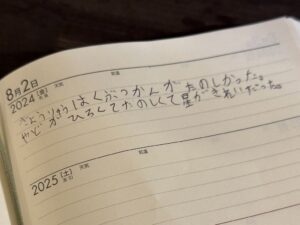 8月2日
2024 (金) 天気 気温
きょうりゅうはくぶつかんがたのしかった。
やどがひろくてたのしくて星がきれいだった。
2025 (土) 天気 気温